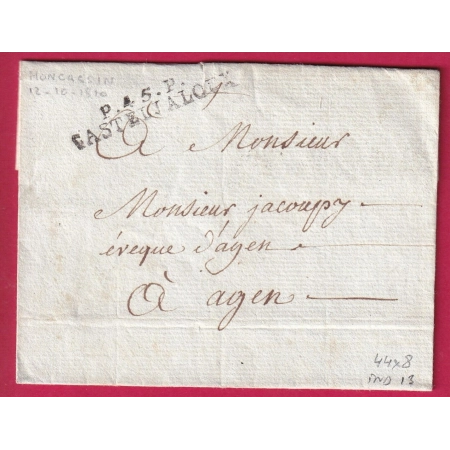 MONCASSIN
12-10-1810
P.45.P.
CASTELJALOUX
A Monsieur
Monsieur jacoupy
évèque d'agen
A agen
44x8
IND 13